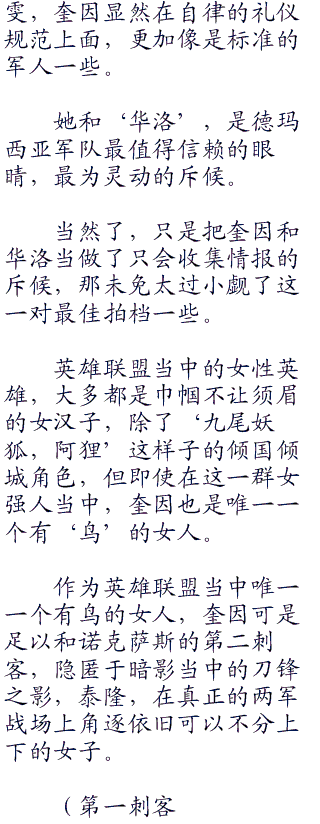 雯，奎因显然在自律的礼仪
规范上面，更加像是标准的
军人一些。
她和‘华洛’，是德玛
西亚军队最值得信赖的眼
睛，最为灵动的斥候。
当然了，只是把奎因和
华洛当做了只会收集情报的
斥候，那未免太过小觑了这
一对最佳拍档一些。
英雄联盟当中的女性英
雄，大多都是巾帼不让须眉
的女汉子，除了‘九尾妖
狐，阿狸’这样子的倾国倾
城角色，但即使在这一群女
强人当中，奎因也是唯一一
个有‘鸟’的女人。
作为英雄联盟当中唯一
一个有鸟的女人，奎因可是
足以和诺克萨斯的第二刺
客，隐匿于暗影当中的刀锋
之影，泰隆，在真正的两军
战场上角逐依旧可以不分上
下的女子。
（第一刺客